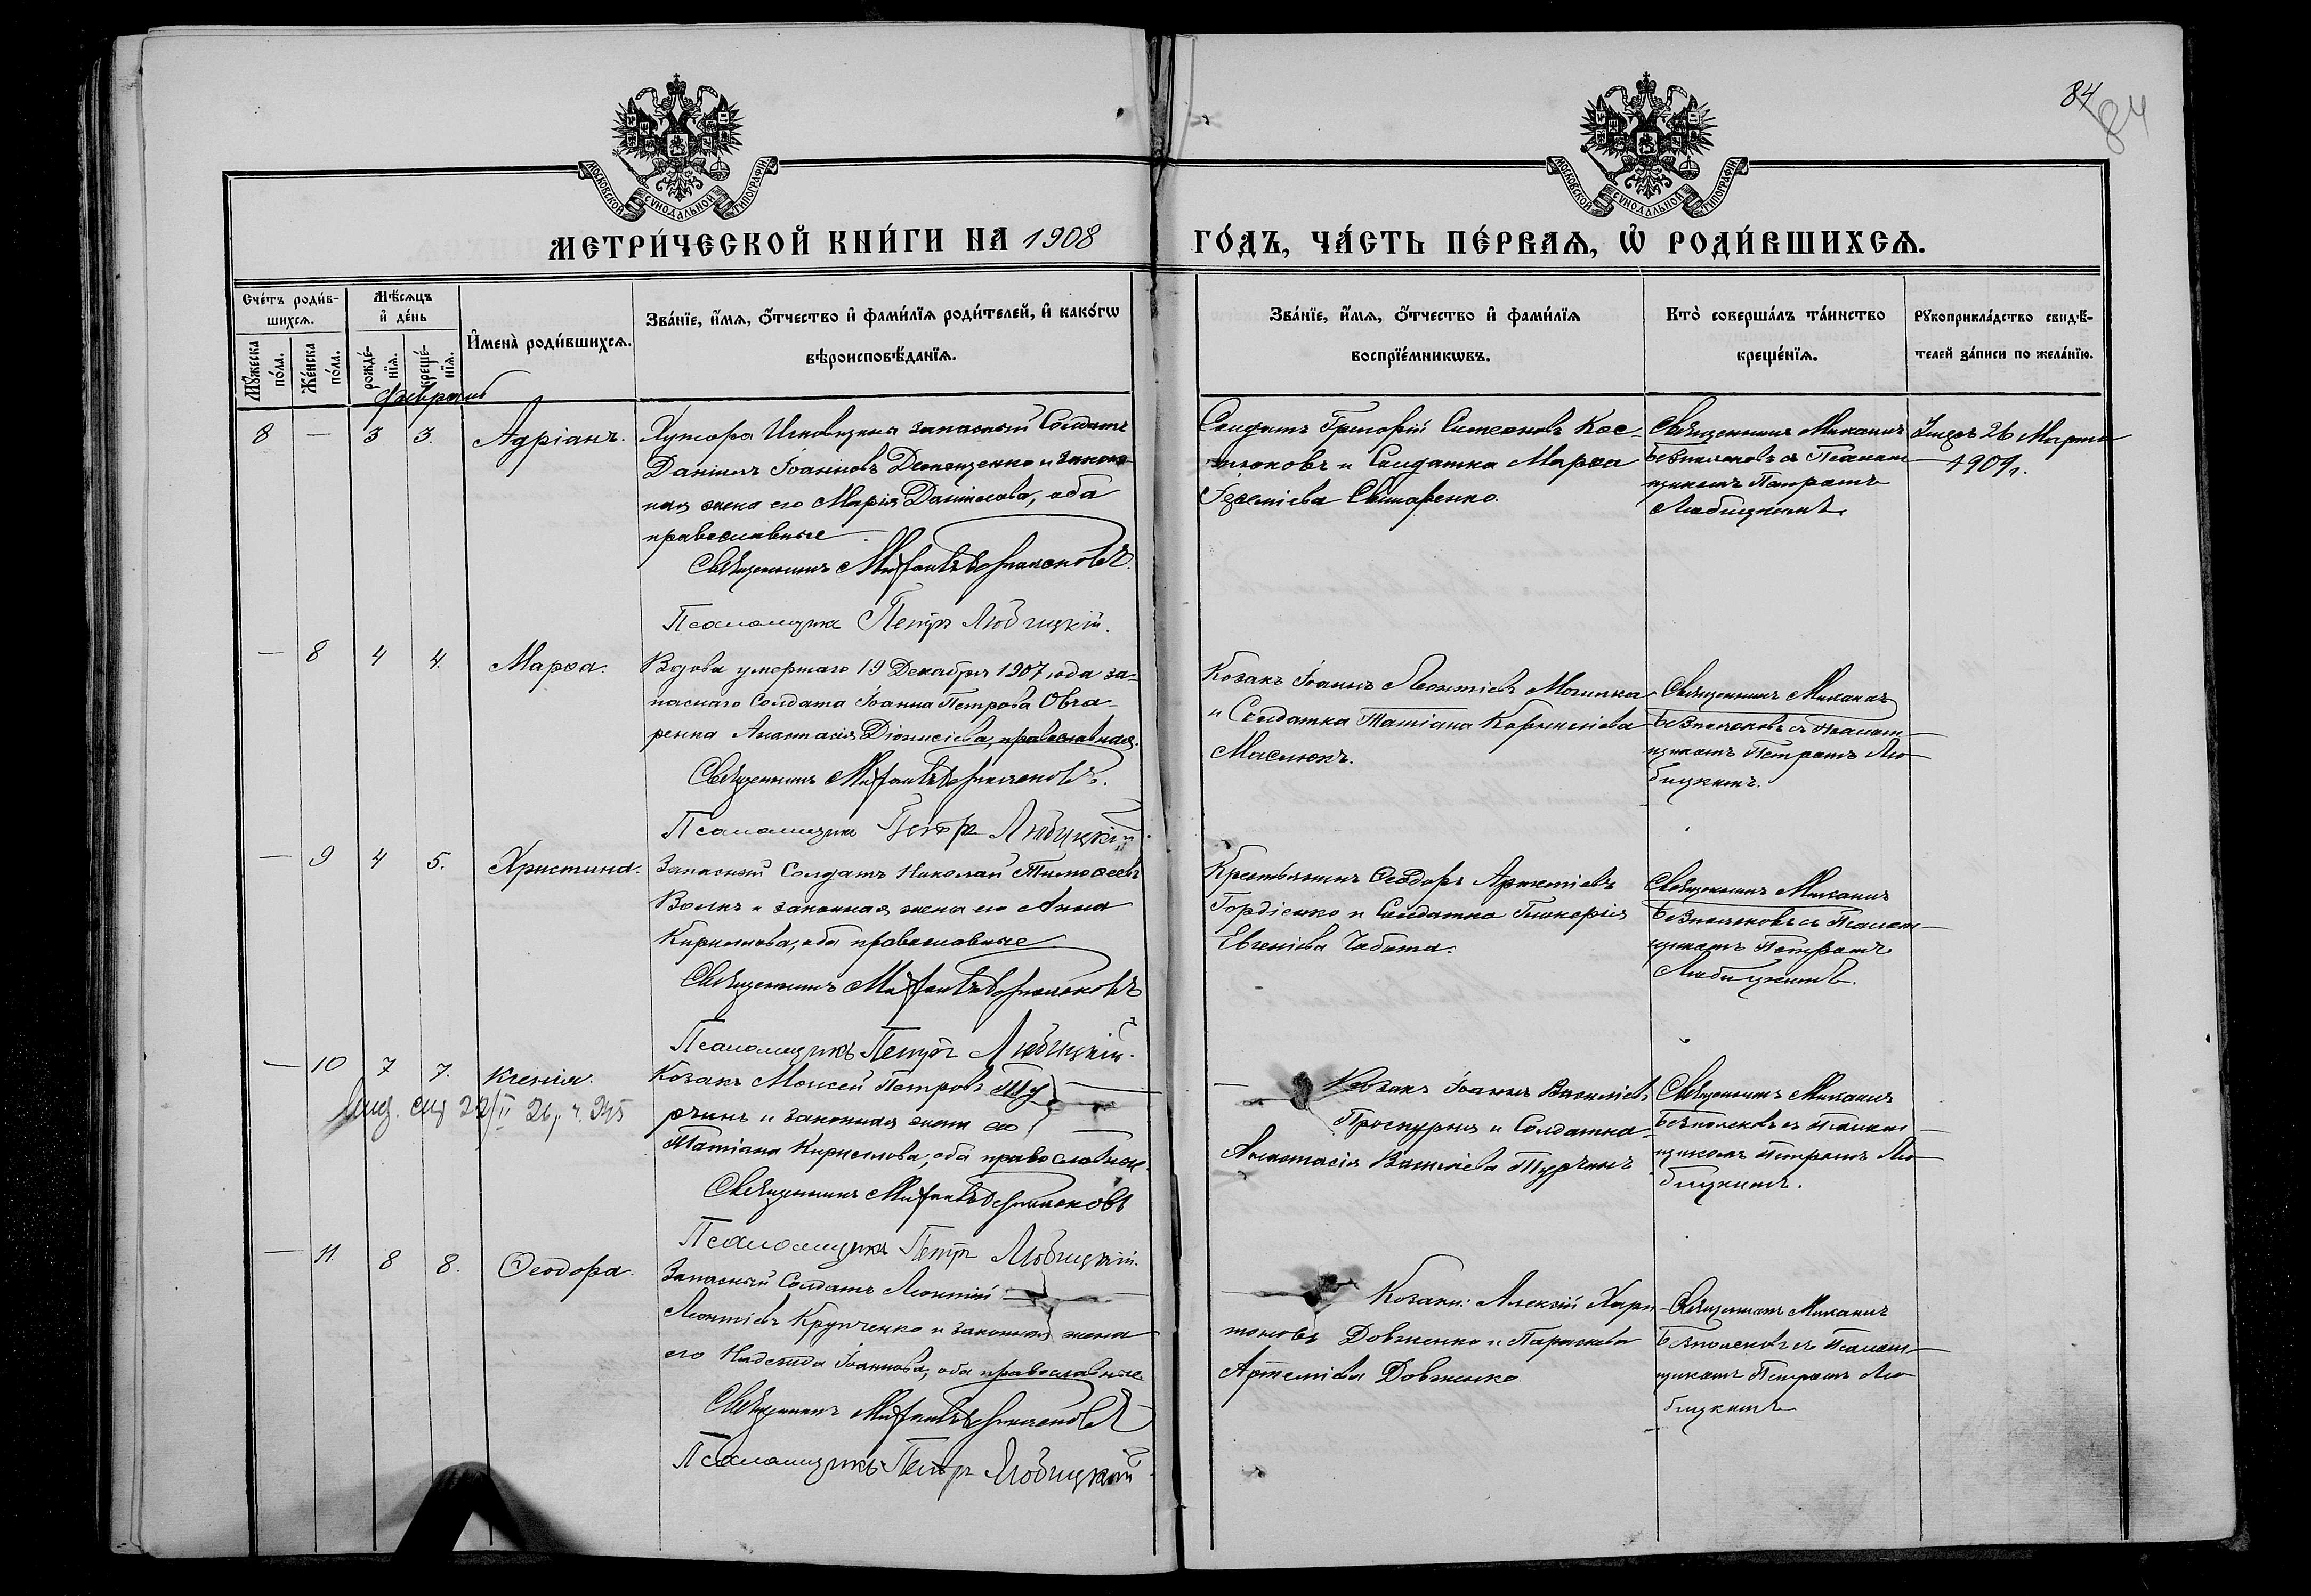 84
84
МОСКОВСКОЙ СУНОДАЛЬНОЙ ТИПОГРАФІИ
МОСКОВСКОЙ СУНОДАЛЬНОЙ ТИПОГРАФІИ
МЕТРИ́ЧЕСКОЙ КНИ́ГИ НА 1908
ГО́ДЪ, ЧА́СТЬ ПЕ́РВАѦ, Ѡ҆ РОДИ́ВШИХСѦ.
Сче́тъ роди́в-
шихсѧ.
Мꙋ́жеска
по́ла.
Же́нска
по́ла.
Мѣ́сѧцъ
и҆ де́нь
рожде́-
нїѧ.
креще́-
нїѧ.
И҆мена̀ роди́вшихсѧ.
Зва́нїе, и҆́мѧ, ѻ҆́тчество и҆ фами́лїѧ роди́телей, и҆ како́гѡ
вѣроисповѣ́данїѧ.
Зва́нїе, и҆́мѧ, ѻ҆́тчество и҆ фами́лїѧ
воспрїе́мникѡвъ.
Кто̀ соверша́лъ та́инство
креще́нїѧ.
Рꙋкоприкла́дство свидѣ́-
телей за́писи по жела́нїю.
Февраль
8 — 3 3. Адріанъ.
Хутора запасный Солдатъ
Даніилъ Іоанновъ и закон-
ная жена его Марія Даніилова, оба
православные
Священникъ Михаилъ
Псаломщикъ Петръ Любицкій.
Солдатъ Григорій Симеоновъ Кос-
тюковъ и Солдатка Марѳа
Свинаренко.
Священникъ Михаилъ
съ Псалом-
щикомъ Петромъ
Любицкимъ.
26 Марта
1909 г.
— 8 4 4. Марѳа.
Вдова умершаго 19 Декабря 1907 года за-
паснаго Солдата Іоанна Петрова Овча-
ренка Анастасія Діонисіева, православная.
Священникъ Михаилъ
Псаломщикъ Петръ Любицкій.
Козакъ Іоаннъ Леонтіевъ
и Солдатка Татіана Корниліева
Маслюкъ.
Священникъ Михаилъ
съ Псалом-
щикомъ Петромъ Лю-
бицкимъ.
— 9 4 5. Христина.
Запасный Солдатъ Николай Тимоѳеевъ
Волкъ и законная жена его Анна
Кириллова, оба православные
Священникъ Михаилъ
Псаломщикъ Петръ Любицкій.
Крестьянинъ Ѳеодоръ Артеміевъ
Гордіенко и Солдатка Гликерія
Евгеніева Чабата.
Священникъ Михаилъ
съ Псалом-
щикомъ Петромъ
Любицкимъ.
— 10 7 7. Ксенія.
22/II 26 г. 245
Козакъ Моисей Петровъ Ту-
рчинъ и законная жена его
Татіана Кириллова, оба православные
Священникъ Михаилъ
Псаломщикъ Петръ Любицкій.
Козакъ Іоаннъ Василіевъ
Проскурня и Солдатка
Анастасія Василіева Турчинъ
Священникъ Михаилъ
съ Псалом-
щикомъ Петромъ Лю-
бицкимъ.
— 11 8 8. Ѳеодора.
Запасный Солдатъ Леонтій
Леонтіевъ Крупченко и законная жена
его Надежда Іоаннова, оба православные
Священникъ Михаилъ
Псаломщикъ Петръ Любицкій
Козаки: Алексій Хари-
тоновъ Довженко и Параскева
Артеміева Довженко
Священникъ Михаилъ
съ Псалом-
щикомъ Петромъ Лю-
бицкимъ